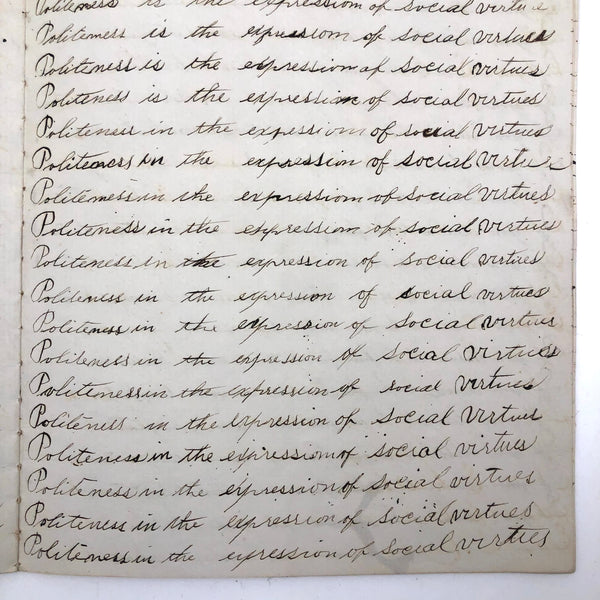 Politeness is the expression of social virtue
Politeness is the expression of social virtues
Politeness is the expression of social virtues
Politeness is the expression of social virtues
Politeness in the expression of social virtues
Politeness in the expression of social virtue
Politeness in the expression of social virtues
Politeness in the expression of social virtues
Politeness in the expression of social virtues
Politeness in the expression of social virtues
Politeness in the expression of social virtues
Politeness in the expression of social virtues
Politeness in the expression of social virtues
Politeness in the expression of social virtues
Politeness in the expression of social virtues
Politeness in the expression of social virtues
Politeness in the expression of social virtues
Politeness in the expression of social virtues